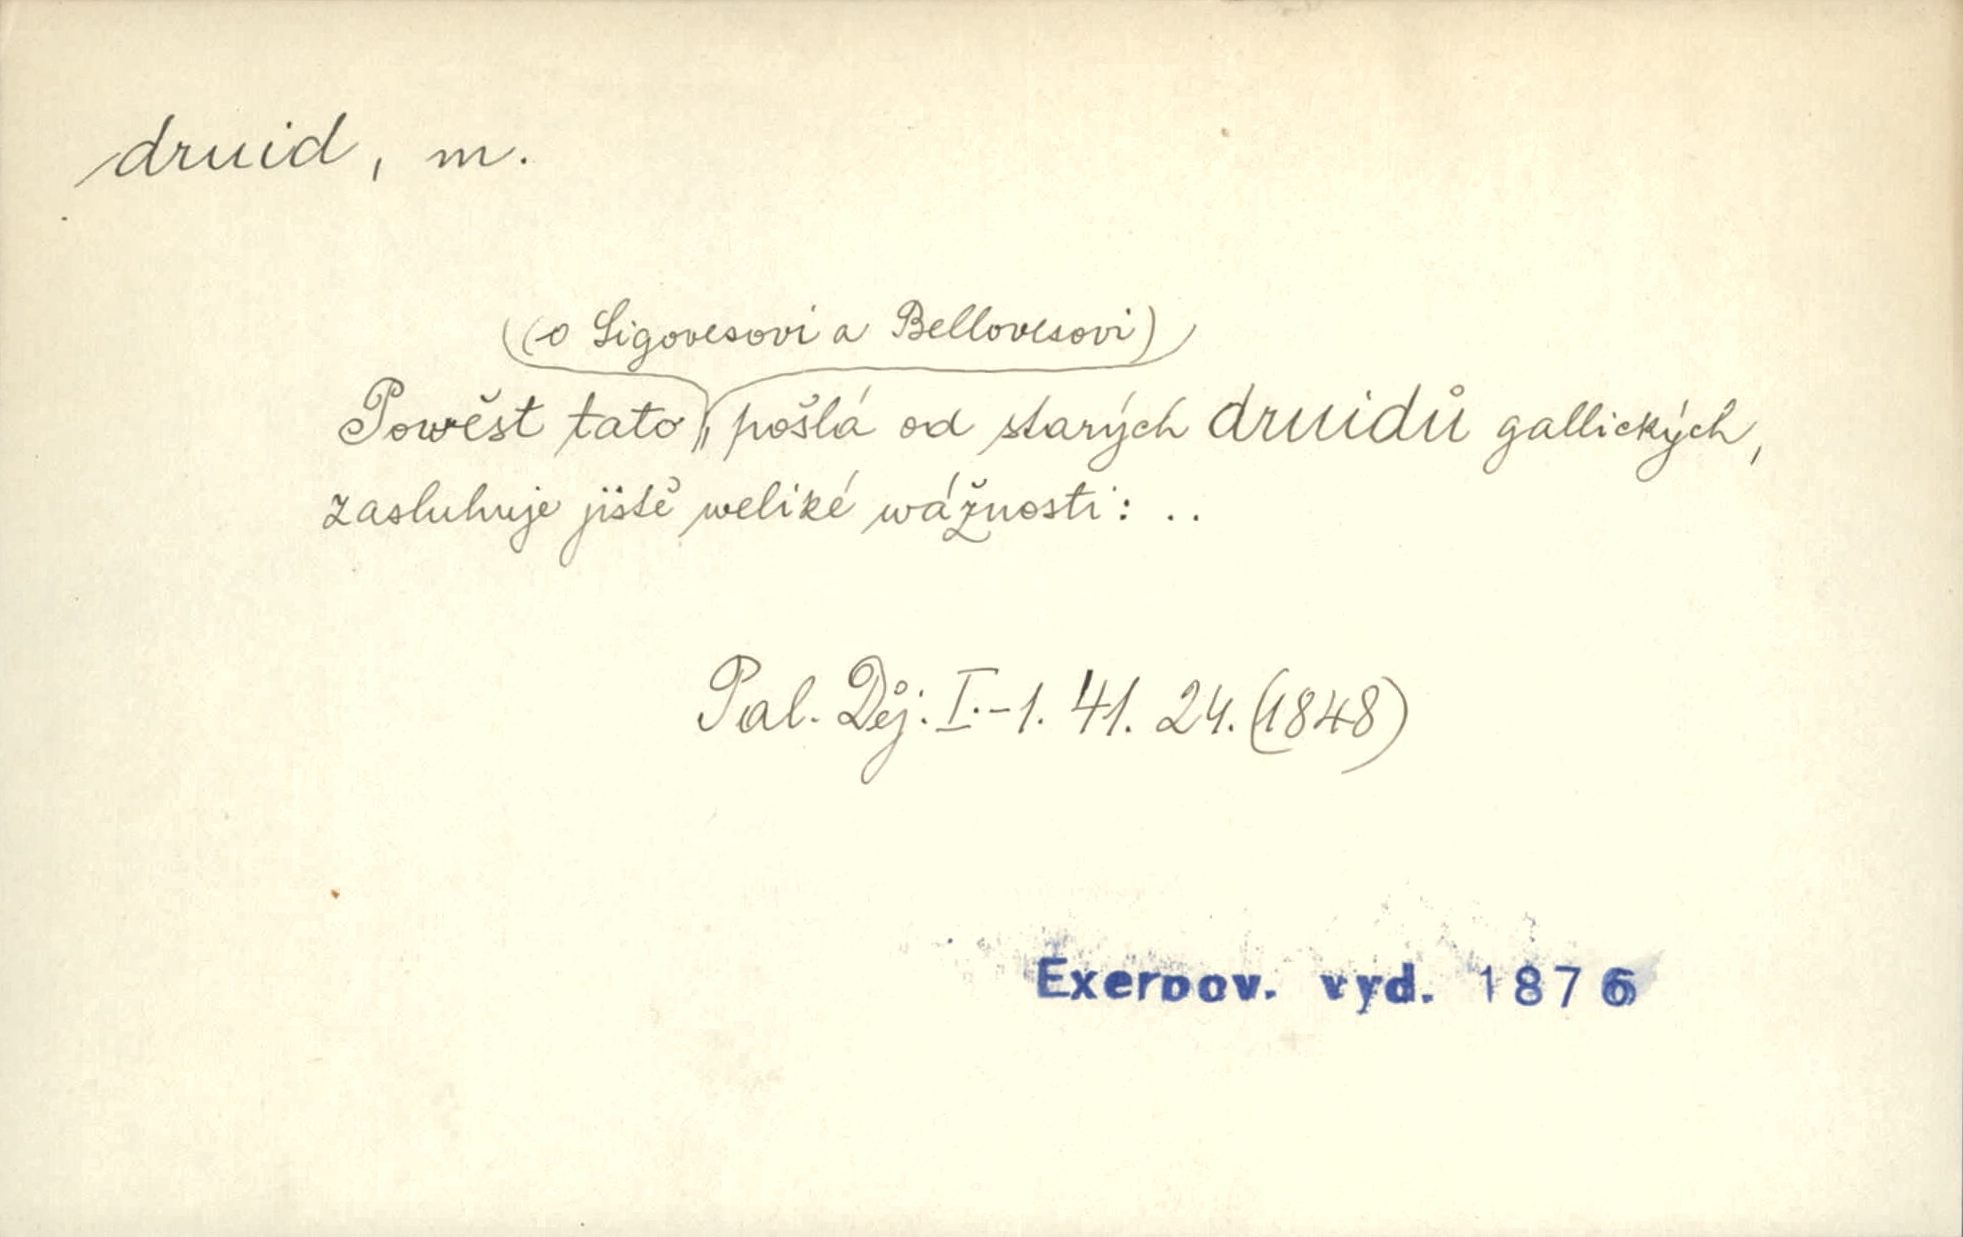 druid, m.
(o Sigovesovi a Bellovesovi)
Powěst tato, pošlá od starých druidů gallických,
zasluhuje jistě weliké wážnosti: ..
Pal. Děj. I.-1. 41. 24. (1848)
Excerpov. vyd. 1876